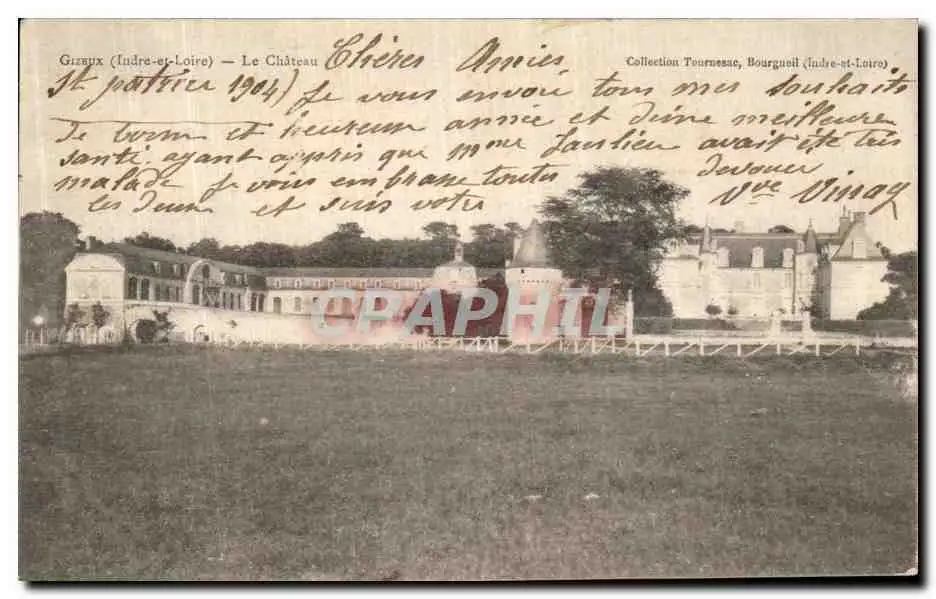 Gizeux (Indre-et-Loire) — Le Château
Collection Tournesac, Bourgueil (Indre-et-Loire)
Chères Amies
St patrice 1904) Je vous envoie tous mes souhaits
de bonne et heureuse année et d'une meilleure
santé. ayant appris que Mme Jaulieu avait été très
malade Je vous embrasse toutes
les deux et suis votre
devouée
Vve Vinay
CPAPHIL